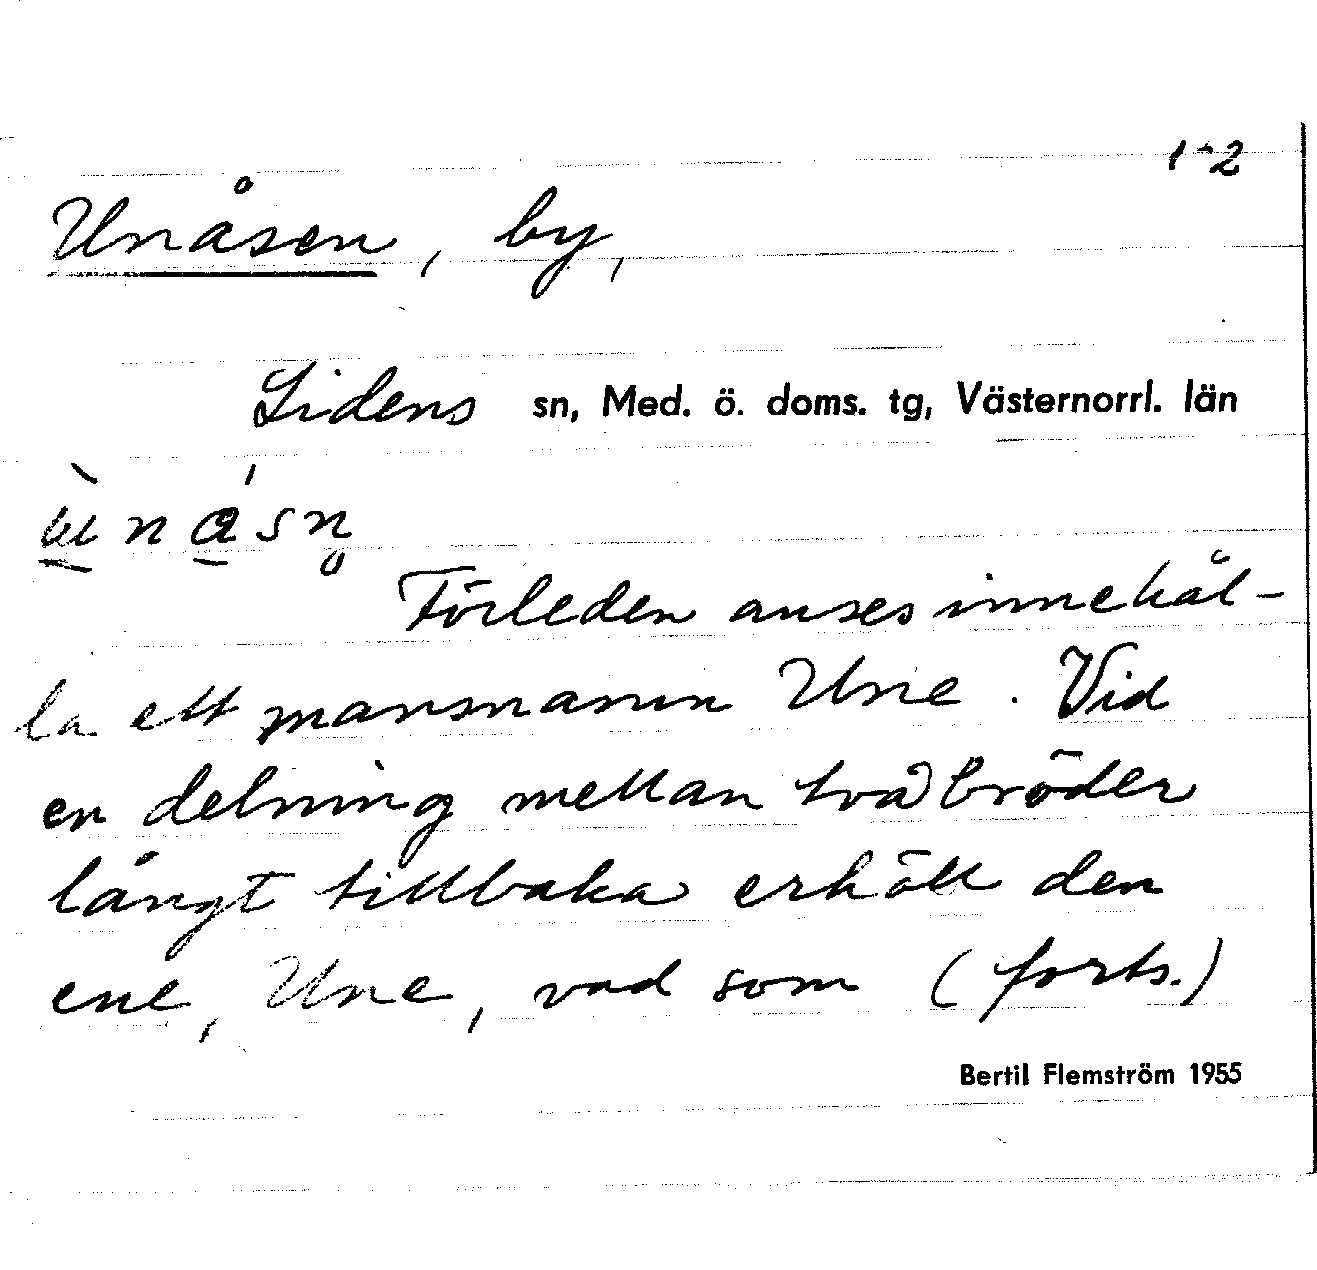 1-2
Unåsen, by,
Lidens sn, Med. ö. doms. tg, Västernorrl. län
Förleden anses innehål-
la ett mansnamn Une. Vid
en delning mellan två bröder
långt tillbaka erhöll den
ene, Une, vad som (forts.)
Bertil Flemström 1955